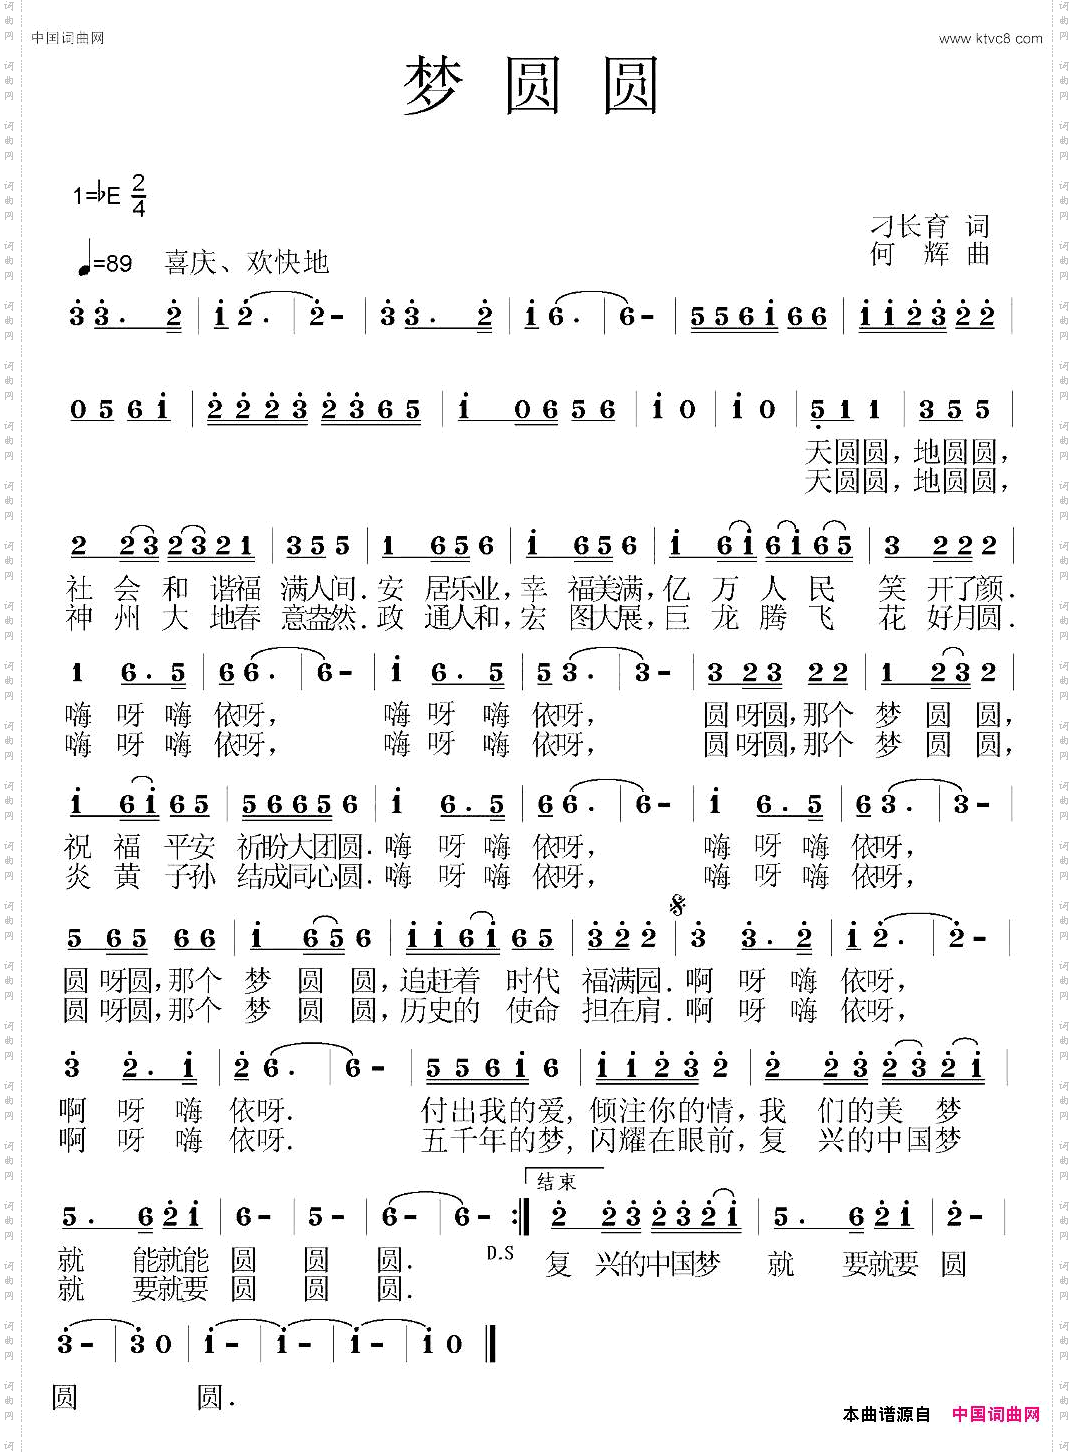 中国词曲网 www ktvc8 com
梦圆圆
1=♭E 2/4
刁长育 词
♩=89 喜庆、欢快地
何辉 曲
3 3. 2 | 1 2. | 2 - | 3 3. 2 | 1 6. | 6 - | 5 5 6 1 6 6 | 1 1 2 3 2 2 |
0 5 6 1 | 2 2 2 3 2 3 6 5 | 1 0 6 5 6 | 1 0 | 1 0 | 5 1 1 | 3 5 5 |
天圆圆，地圆圆，
天圆圆，地圆圆，
2 2 3 2 3 2 1 | 3 5 5 | 1 6 5 6 | 1 6 5 6 | 1 6 1 6 1 6 5 | 3 2 2 2 |
社会和谐福满人间.安居乐业，幸福美满，亿万人民笑开了颜.
神州大地春意盎然.政通人和，宏图大展，巨龙腾飞花好月圆.
1 6. 5 | 6 6. | 6 - | 1 6. 5 | 5 3. | 3 - | 3 2 3 2 2 | 1 2 3 2 |
嗨呀嗨依呀，嗨呀嗨依呀，圆呀圆，那个梦圆圆，
嗨呀嗨依呀，嗨呀嗨依呀，圆呀圆，那个梦圆圆，
1 6 1 6 5 | 5 6 6 5 6 | 1 6. 5 | 6 6. | 6 - | 1 6. 5 | 6 3. | 3 - |
祝福平安祈盼大团圆.嗨呀嗨依呀，嗨呀嗨依呀，
炎黄子孙结成同心圆.嗨呀嗨依呀，嗨呀嗨依呀，
5 6 5 6 6 | 1 6 5 6 | 1 1 6 1 6 5 | 3 2 2 | 3 3. 2 | 1 2. | 2 - |
圆呀圆，那个梦圆圆，追赶着时代福满园.啊呀嗨依呀，
圆呀圆，那个梦圆圆，历史的使命担在肩.啊呀嗨依呀，
3 2. 1 | 2 6. | 6 - | 5 5 6 1 6 | 1 1 2 3 2 | 2 2 3 2 3 2 1 |
啊呀嗨依呀.付出我的爱，倾注你的情，我们的美梦
啊呀嗨依呀.五千年的梦，闪耀在眼前，复兴的中国梦
结束
5. 6 2 1 | 6 - | 5 - | 6 - | 6 - :‖ 2 2 3 2 3 2 1 | 5. 6 2 1 | 2 - |
就能就能圆圆圆. D.S 复兴的中国梦就要就要圆
就要就要圆圆圆.
3 - | 3 0 | 1 - | 1 - | 1 - | 1 0 ‖
圆圆.
本曲谱源自 中国词曲网